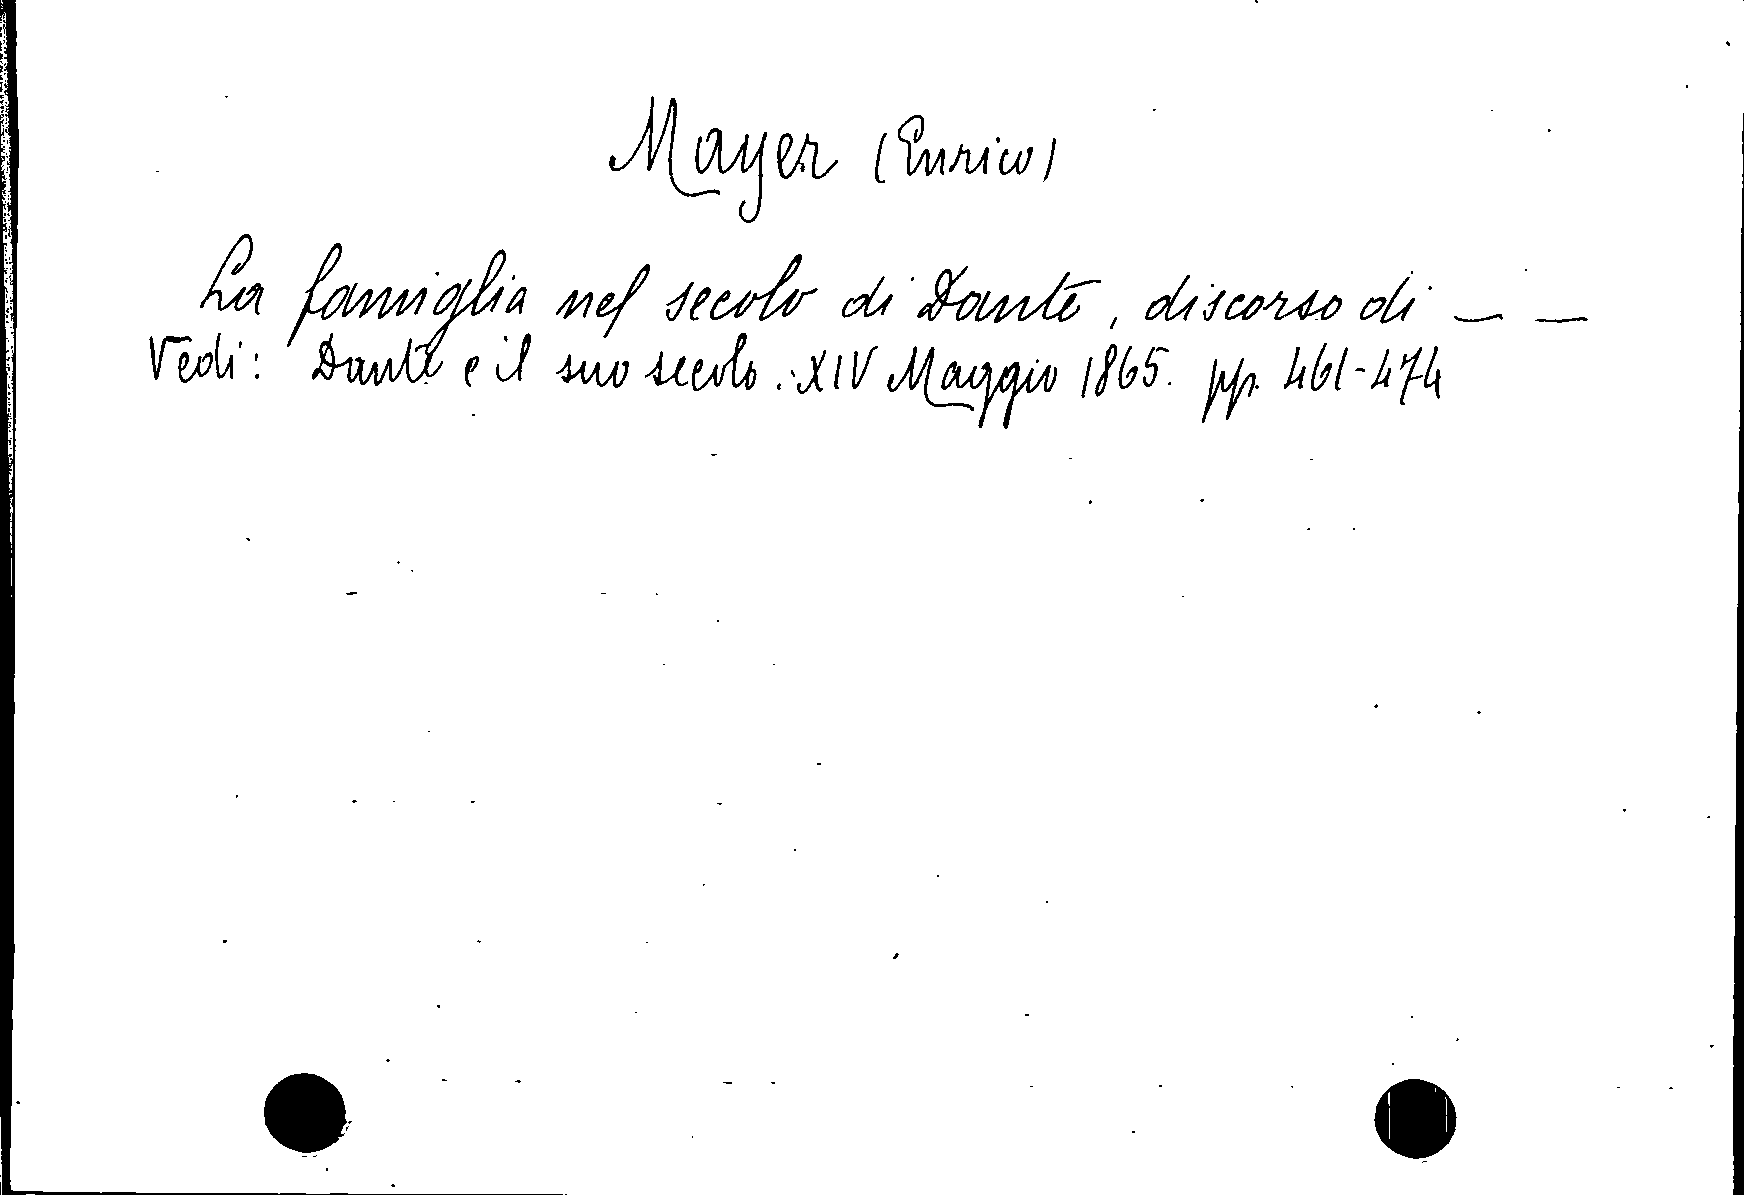 Mayer (Enrico)
La famiglia nel secolo di Dante, discorso di — —
Vedi: Dante e il suo secolo. XIV Maggio 1865. pp. 461-474